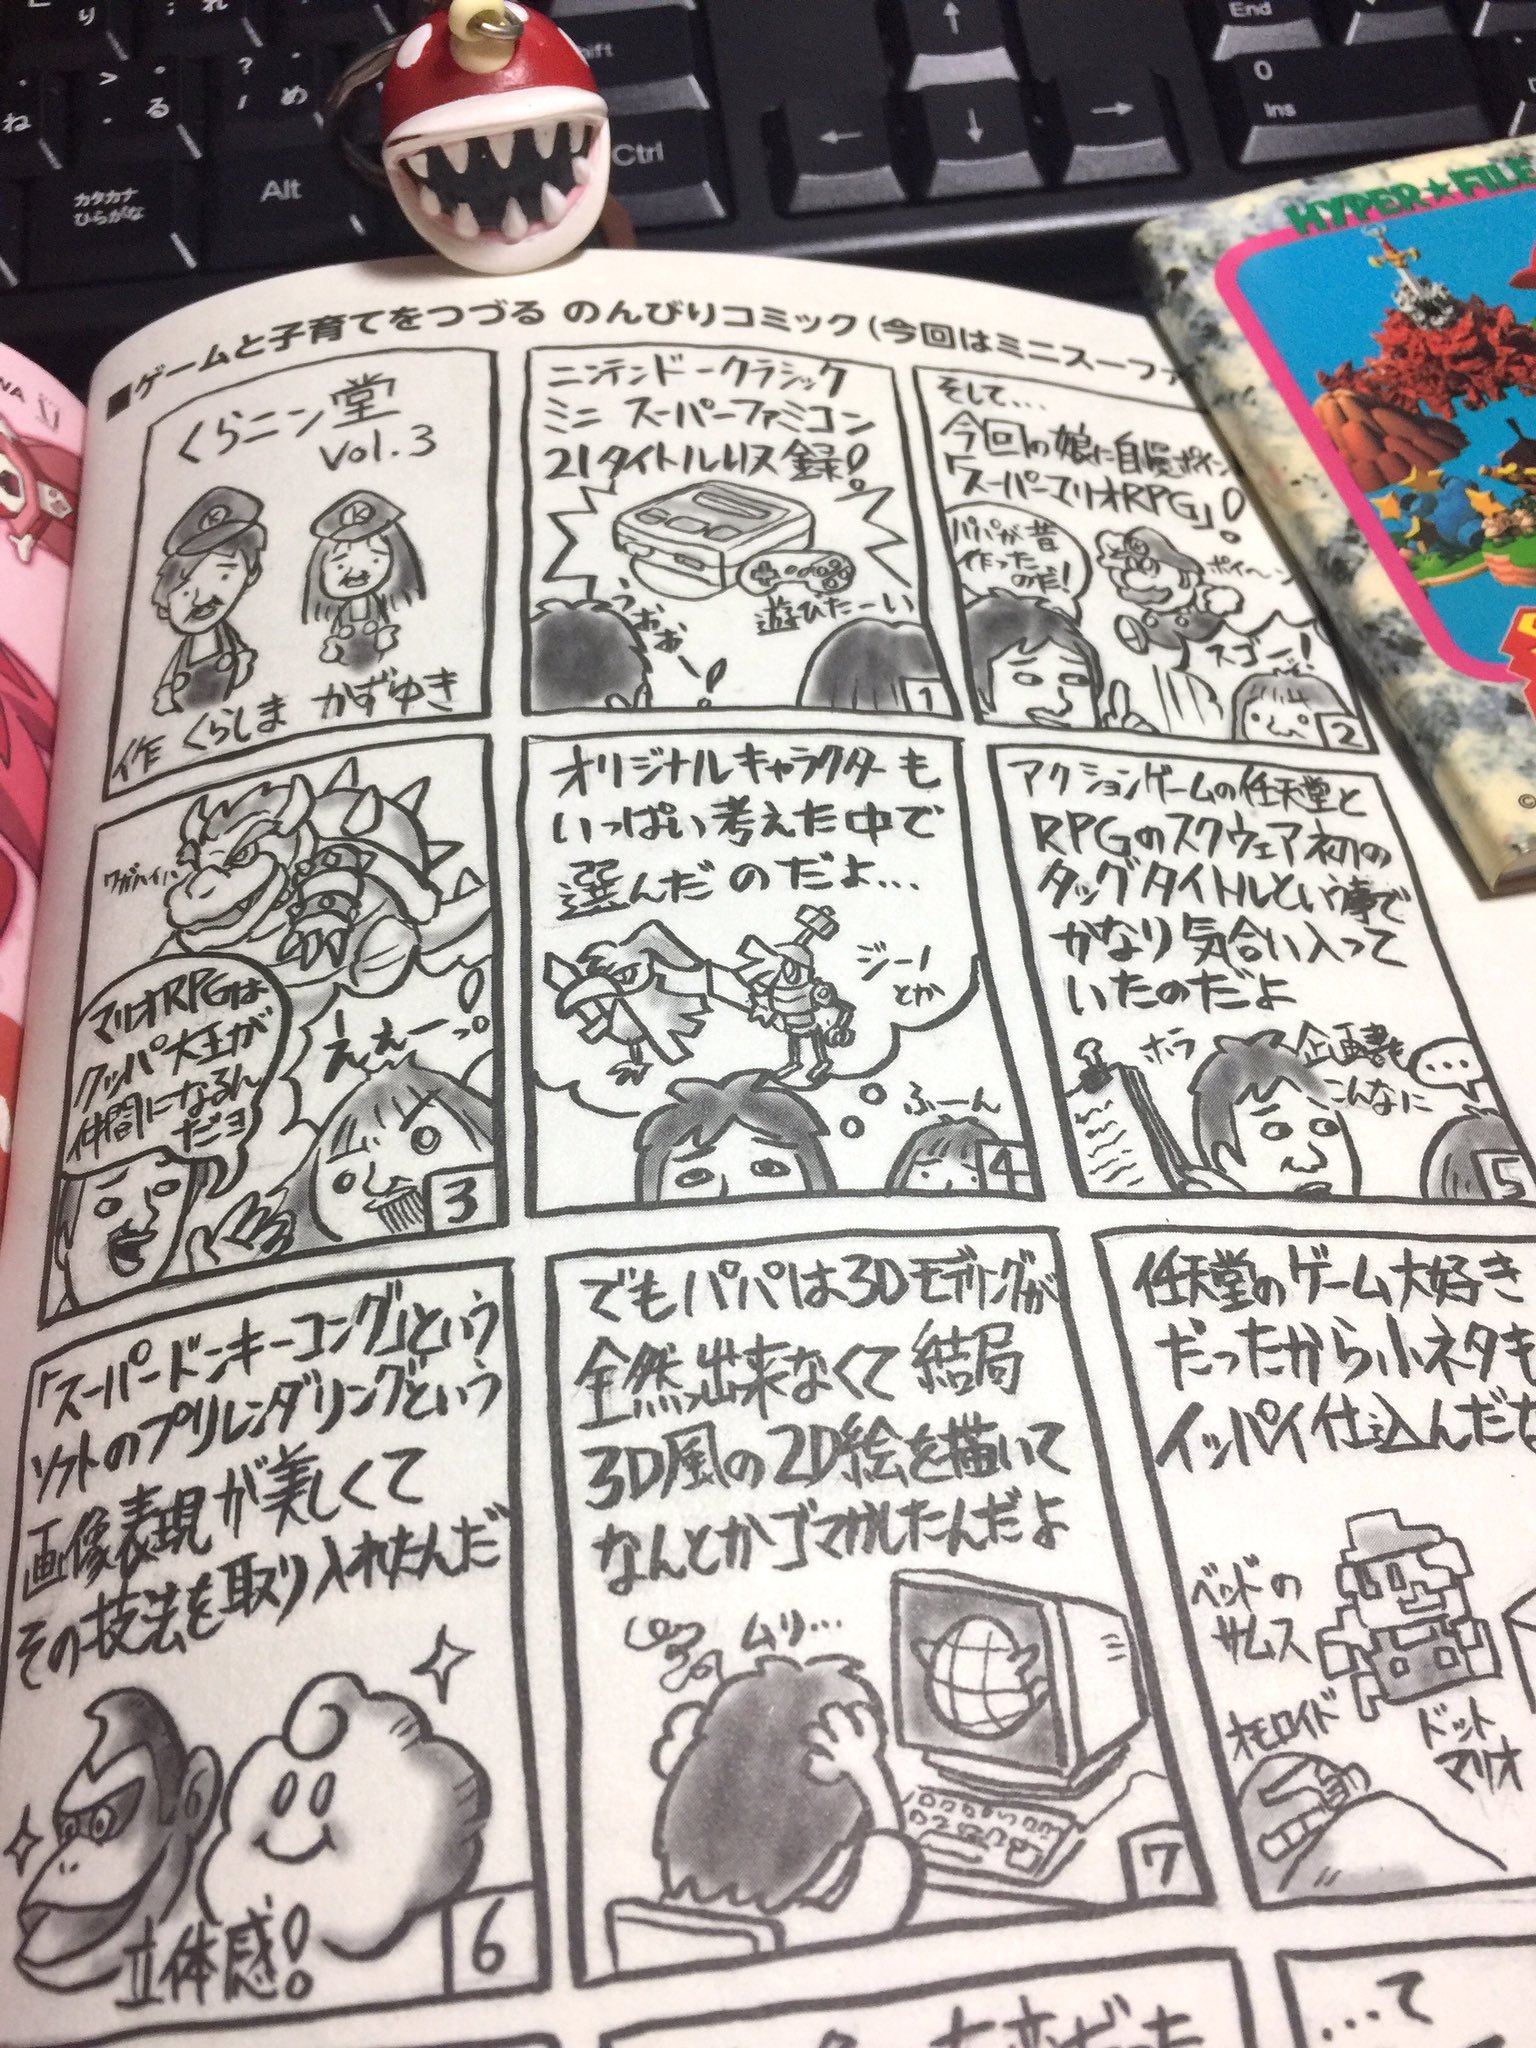 End
Shift
Ctrl
Alt
カタカナ
ひらがな
り
る
ね
め
0
Ins
HYPER★FILE
■ゲームと子育てをつづる のんびりコミック(今回はミニスーファ
くらニン堂
vol.3
作 くらしま かずゆき
ニンテンドークラシック
ミニ スーパーファミコン
21タイトル収録!
うおおー!
遊びたーい
1
そして...
今回の娘に自慢ポイン
「スーパーマリオRPG」!
パパが昔
作った
のだ!
ポイ〜ン
スゴーッ!
2
ワガハイハ
マリオRPGは
クッパ大王が
仲間になるん
だヨ
えぇーっ!
3
オリジナルキャラクターも
いっぱい考えた中で
選んだのだよ...
ジーノ
とか
ふーん
4
アクションゲームの任天堂と
RPGのスクウェア初の
タッグタイトルという事で
かなり気合い入って
いたのだよ
ホラ
企画書も
こんなに
...
5
「スーパードンキーコング」という
ソフトのプリレンダリングという
画像表現が美しくて
その技法を取り入れたんだ
立体感!
6
でもパパは3Dモデリングが
全然出来なくて結局
3D風の2D絵を描いて
なんとかゴマかしたんだよ
ムリ...
7
任天堂のゲーム大好き
だったから小ネタも
イッパイ仕込んだな
ベッドの
サムス
オモロイド
ドット
マリオ
...て